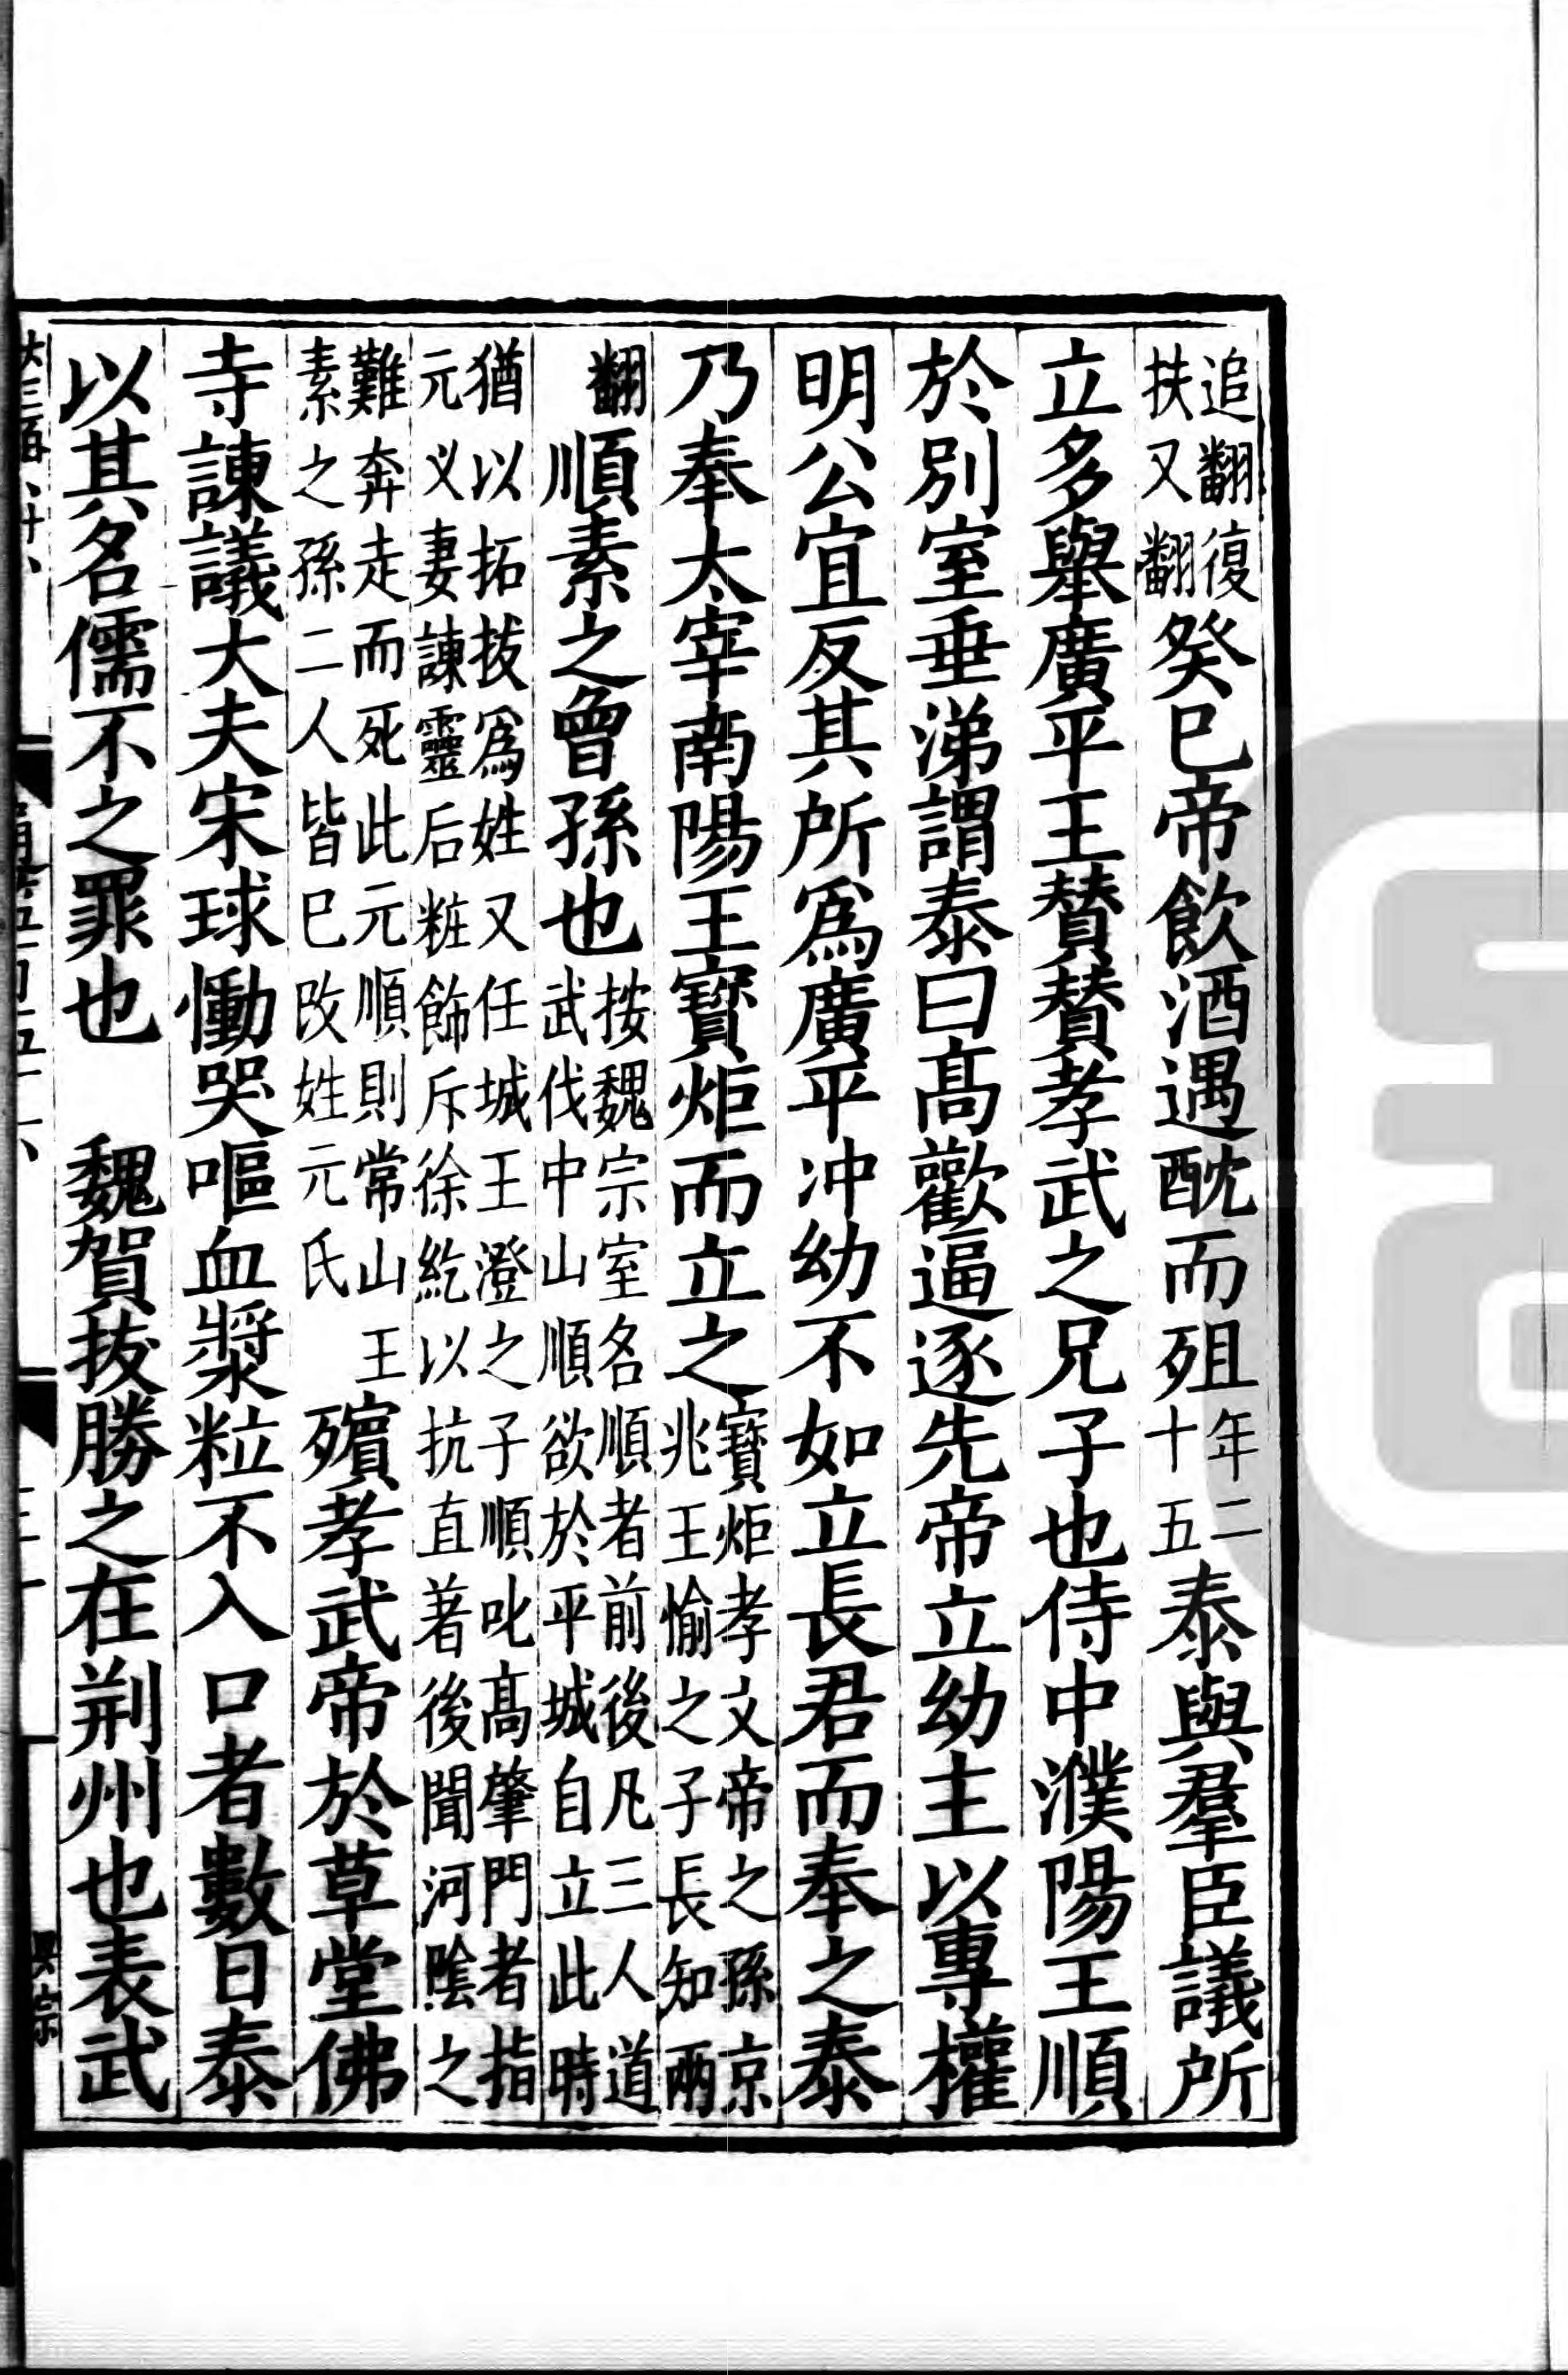 追翻復扶又翻癸巳帝飲酒遇酖而殂年二十五泰與羣臣議所
立多舉廣平王贊贊孝武之兄子也侍中濮陽王順
於別室垂涕謂泰曰高歡逼逐先帝立幼主以專權
明公宜反其所爲廣平冲幼不如立長君而奉之泰
乃奉太宰南陽王寶炬而立之寶炬孝文帝之孫京兆王愉之子長知兩
翻順素之曾孫也按魏宗室名順者前後凡三人道武伐中山順欲於平城自立此時
猶以拓拔爲姓又任城王澄之子順叱高肇門者指元义妻諫靈后粧飾斥徐紇以抗直著後聞河陰之
難奔走而死此元順則常山王素之孫二人皆巳改姓元氏殯孝武帝於草堂佛
寺諫議大夫宋球慟哭嘔血漿粒不入口者數日泰
以其名儒不之罪也　魏賀拔勝之在荆州也表武